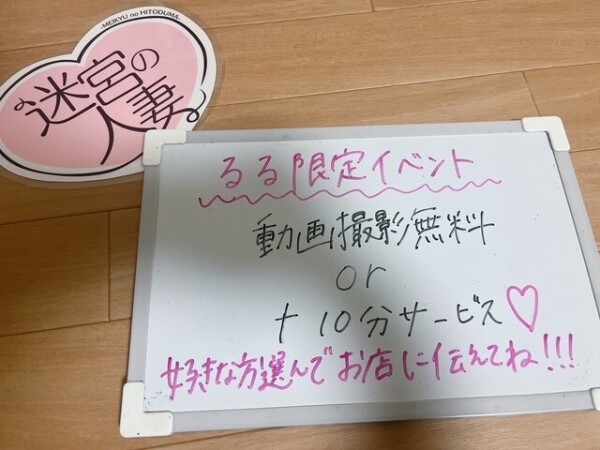 -MEIKYU no HITODUMA-
迷宮の
人妻
るる限定イベント
動画撮影無料
or
+10分サービス♡
好きな方選んでお店に伝えてね!!!